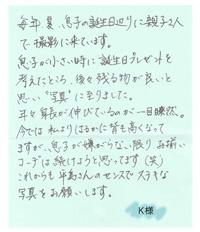 毎年、夏、息子の誕生日辺りに親子2人
で撮影に来ています。
息子が小さい時に誕生日プレゼントを
考えたところ、後々残る物が良いと
思い"写真"に至りました。
年々身長が伸びているのが一目瞭然。
今では私よりはるかに背も高くなって
ますが、息子が嫌がらない限りお揃い
コーデは続けようと思ってます(笑)
これからも平島さんのセンスでステキな
写真をお願いします。
K様